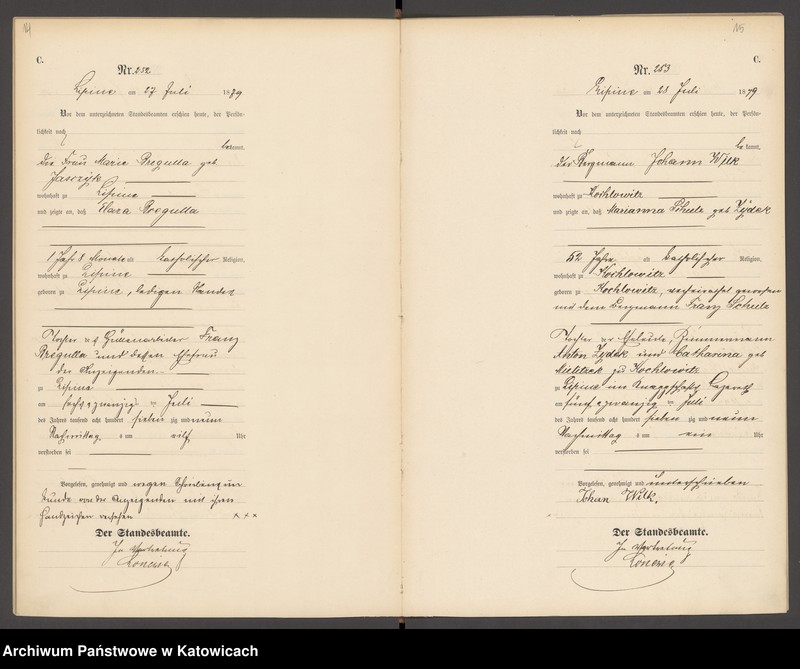 C.
Nr. 252
Lipine am 27 Juli 1879
Vor dem unterzeichneten Standesbeamten erschien heute, der Persön-
lichkeit nach
bekannt,
die Frau Marie Bregulla geb
wohnhaft zu Lipine
und zeigte an, daß Klara Bregulla
1 Jahr 8 Monate alt katholischer Religion,
wohnhaft zu Lipine
geboren zu Lipine, ledigen Standes
Tochter des Hüttenarbeiter Franz
Bregulla und dessen Ehefrau
der Anzeigenden
zu Lipine
am sechs u zwanzig ten Juli
des Jahres tausend acht hundert sieben zig und neun
Nachmittag s um elf Uhr
verstorben sei
Vorgelesen, genehmigt und wegen Schreibensun
kunde von der Anzeigenden mit ihren
Handzeichen versehen xxx
Der Standesbeamte.
In Vertretung
115
C.
Nr. 253
Lipine am 28 Juli 1879
Vor dem unterzeichneten Standesbeamten erschien heute, der Persön-
lichkeit nach
bekannt,
der Bergmann Johann Wilk
wohnhaft zu Kochlowitz
und zeigte an, daß Marianna Schulz geb Zydek
52 Jahre alt katholischer Religion,
wohnhaft zu Kochlowitz
geboren zu Kochlowitz, verheirathet gewesen
mit dem Bergmann Franz Schulz
Tochter der Eheleute, Zimmermann
Anton Zydek und Catharina geb
zu Kochlowitz
zu Lipine im Knappschafts Lazareth
am fünf u zwanzig ten Juli
des Jahres tausend acht hundert sieben zig und neun
Nachmittag s um ein Uhr
verstorben sei
Vorgelesen, genehmigt und unterschrieben
Johan Wilk.
Der Standesbeamte.
In Vertretung
Archiwum Państwowe w Katowicach